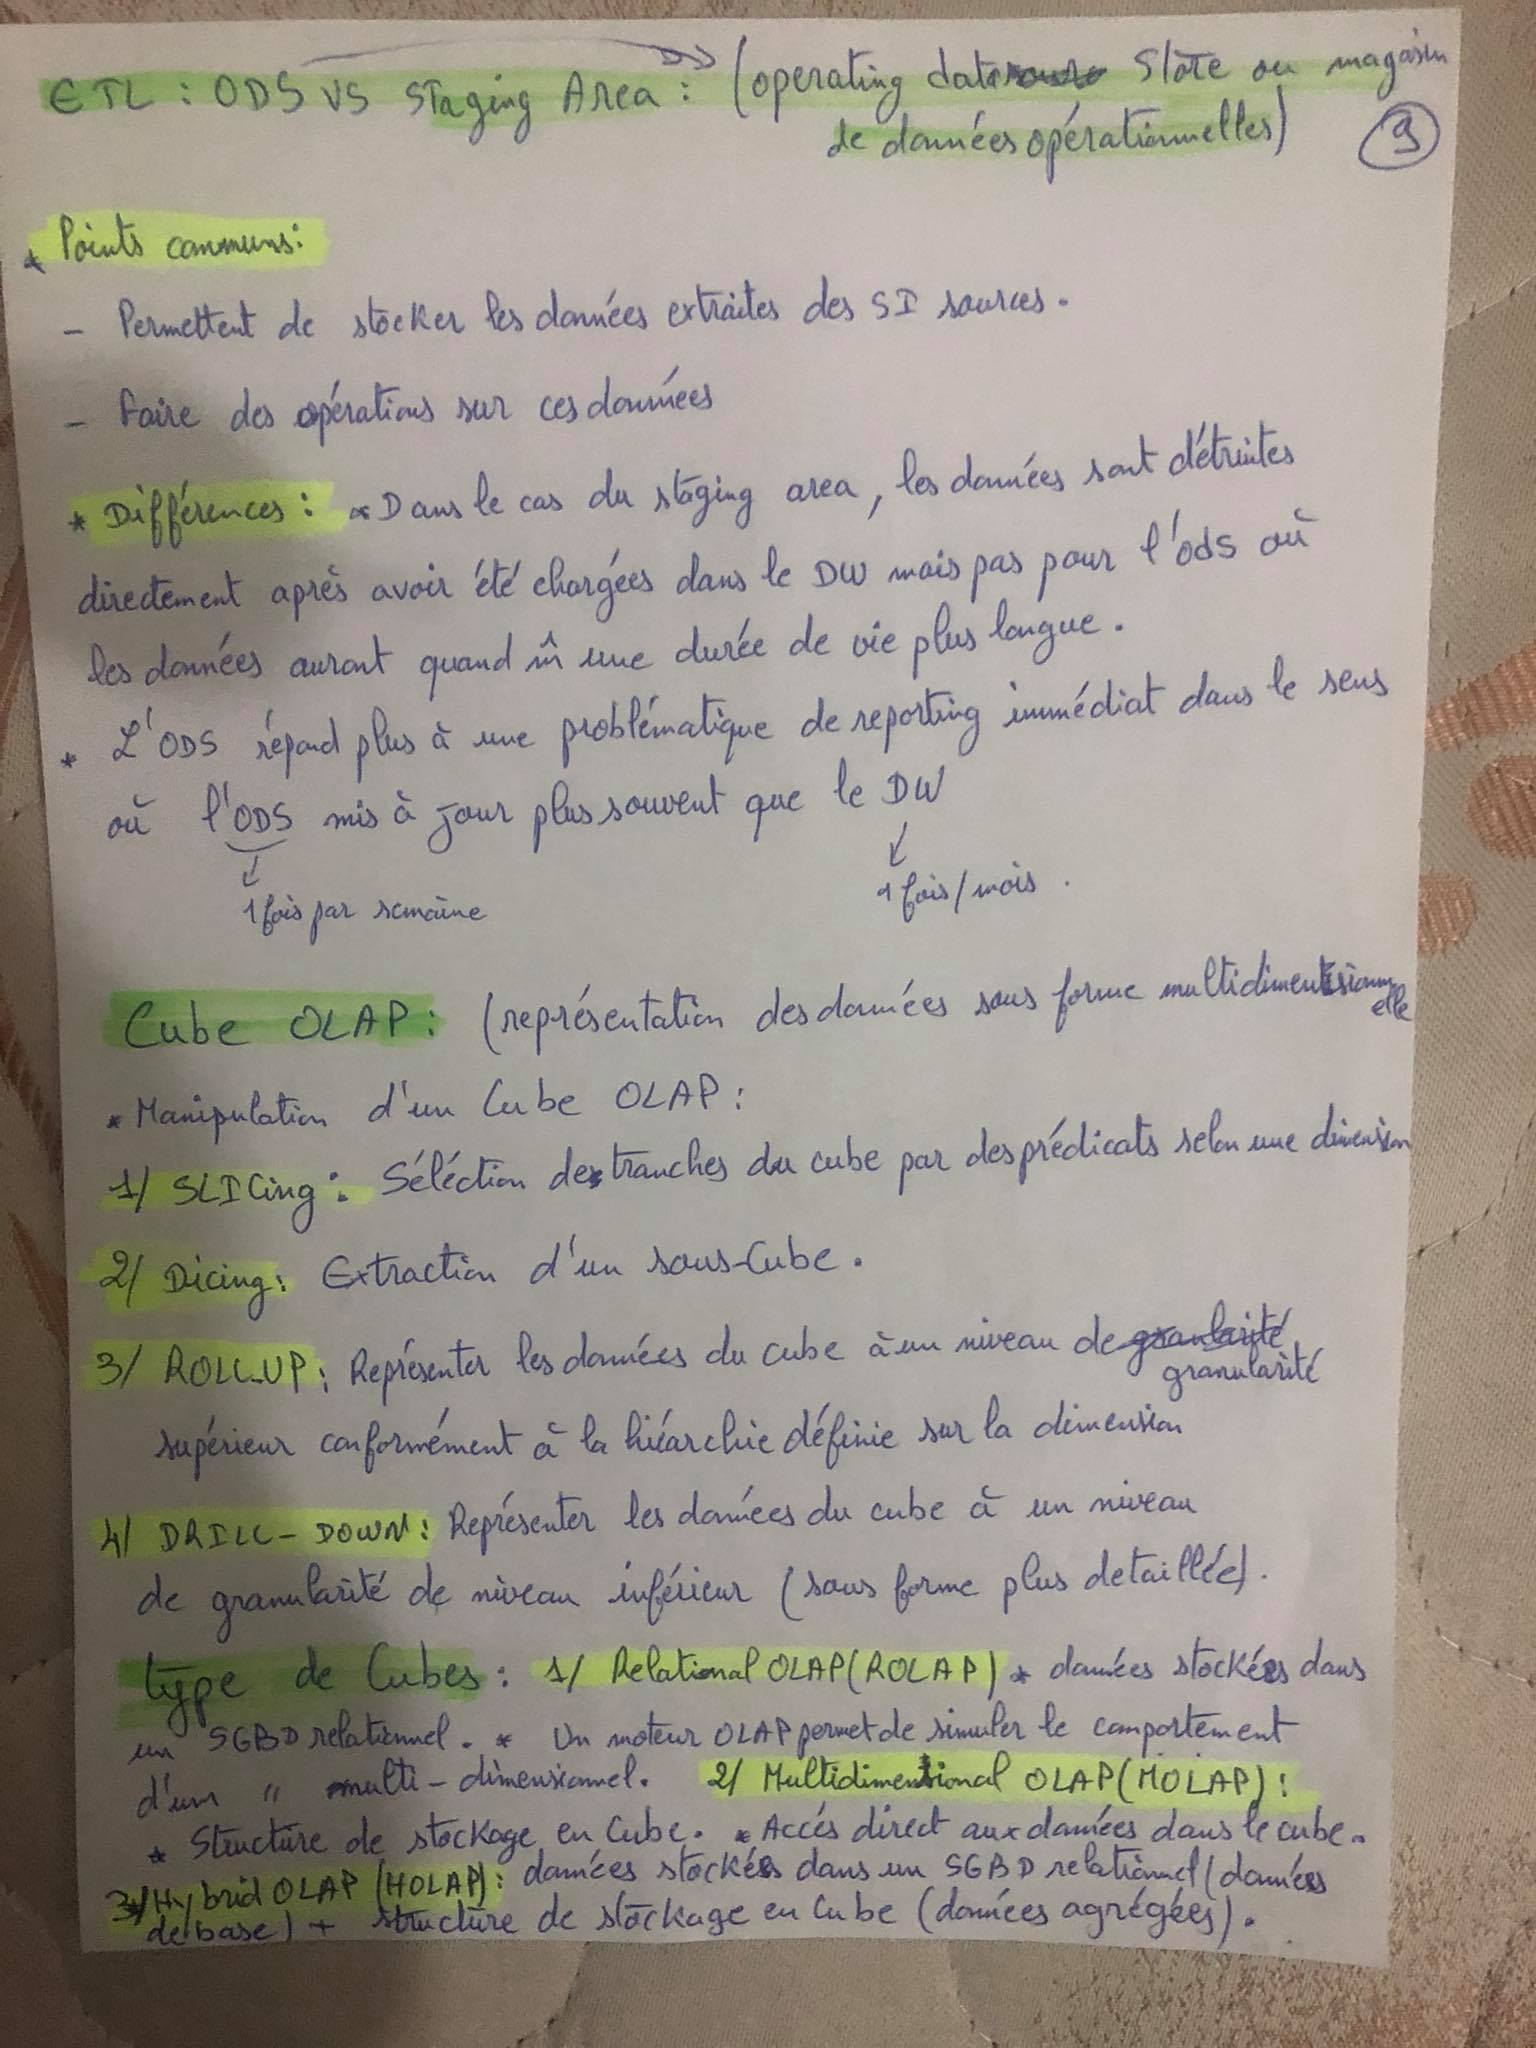 ETL : ODS VS Staging Area : (operating data Store ou magasin
de données opérationnelles)
9
* Points communs :
- Permettent de stocker les données extraites des SI sources.
- Faire des opérations sur ces données
* Différences : * Dans le cas du staging area, les données sont détruites
directement après avoir été chargées dans le DW mais pas pour l'ODS où
les données auront quand m̂ une durée de vie plus longue.
* L'ODS répond plus à une problématique de reporting immédiat dans le sens
où l'ODS mis à jour plus souvent que le DW
↓ ↓
1 fois par semaine 1 fois/mois.
Cube OLAP : (représentation des données sous forme multidimensionnelle
* Manipulation d'un Cube OLAP :
1/ SLICing : Séléction des tranches du cube par des prédicats selon une dimension
2/ Dicing : Extraction d'un sous-Cube.
3/ ROLL-UP : Représenter les données du cube à un niveau de granularité
supérieur conformément à la hiéarchie définie sur la dimension
4/ DRILL-DOWN : Représenter les données du cube à un niveau
de granularité de niveau inférieur (sous forme plus detaillée).
type de Cubes : 1/ Relational OLAP (ROLAP) * données stockées dans
un SGBD relationnel. * Un moteur OLAP permet de simuler le comportement
d'un " multi-dimensionnel. 2/ Multidimensional OLAP (MOLAP) :
* Structure de stockage en Cube. * Accés direct aux données dans le cube.
3/ Hybrid OLAP (HOLAP) : données stockées dans un SGBD relationnel (données
de base) + structure de stockage en Cube (données agrégées).